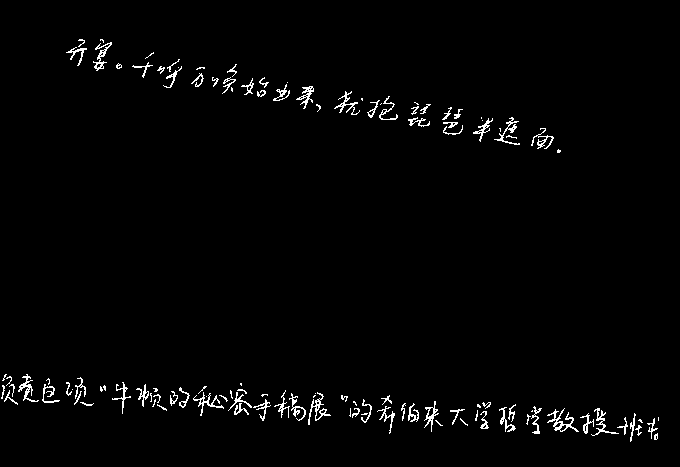 开宴。千呼万唤始出来,犹抱琵琶半遮面.
负责此项“牛顿的秘密手稿展”的希伯来大学哲学教授班